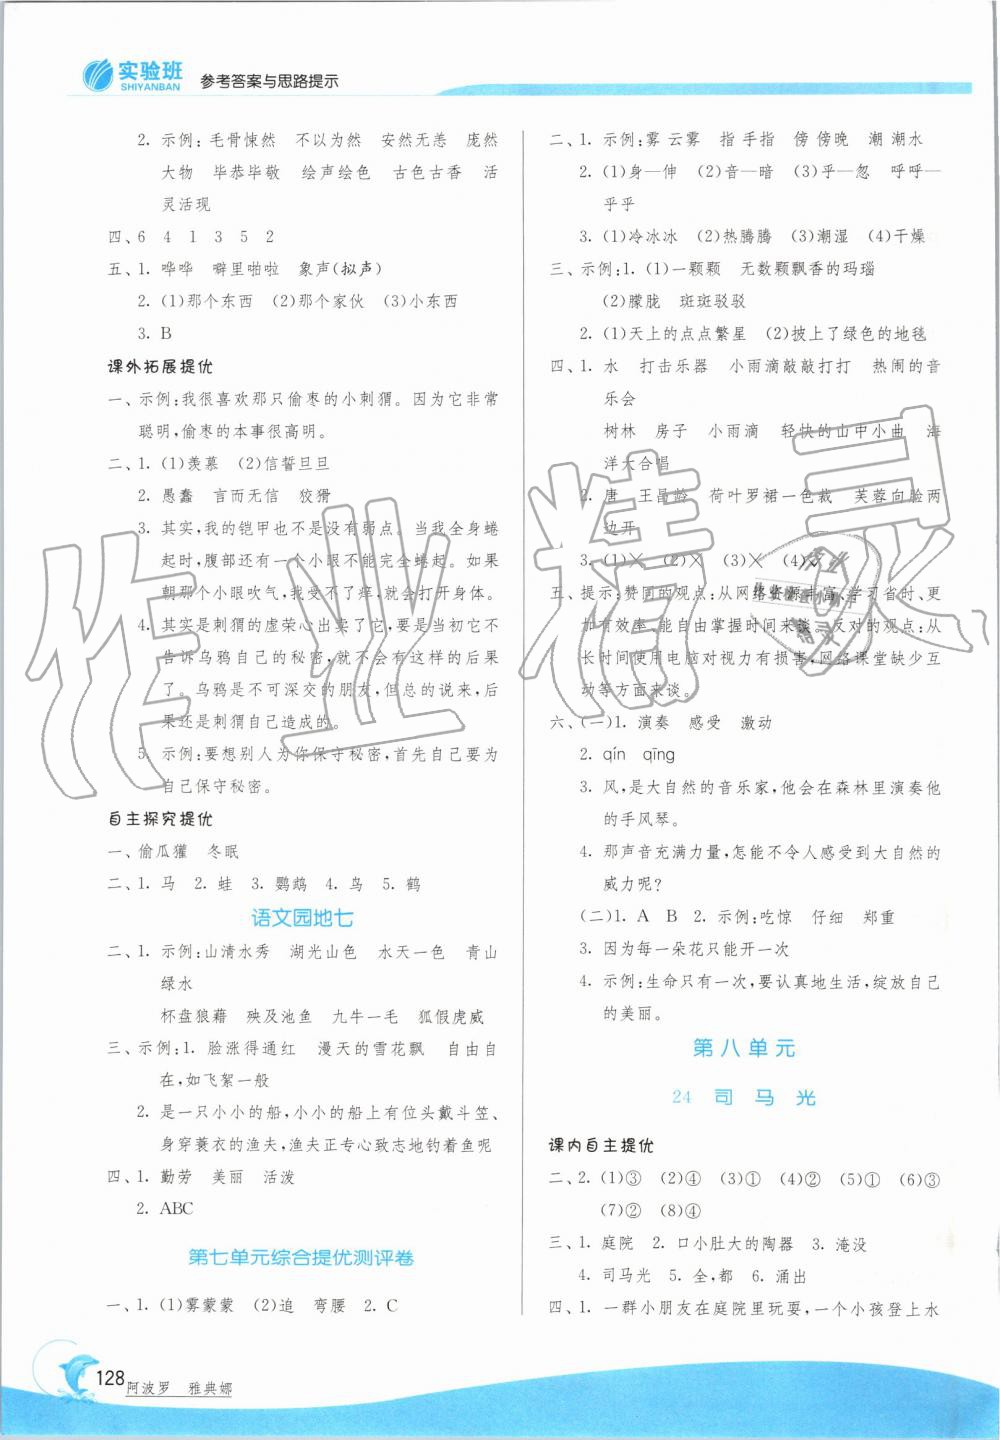 实验班
SHIYANBAN
参考答案与思路提示
2. 示例:毛骨悚然 不以为然 安然无恙 庞然
大物 毕恭毕敬 绘声绘色 古色古香 活
灵活现
四、6 4 1 3 5 2
五、1. 哗哗 噼里啪啦 象声(拟声)
2. (1)那个东西 (2)那个家伙 (3)小东西
3. B
课外拓展提优
一、示例:我很喜欢那只偷枣的小刺猬。因为它非常
聪明,偷枣的本事很高明。
二、1. (1)羡慕 (2)信誓旦旦
2. 愚蠢 言而无信 狡猾
3. 其实,我的铠甲也不是没有弱点。当我全身蜷
起时,腹部还有一个小眼不能完全蜷起。如果
朝那个小眼吹气,我受不了痒,就会打开身体。
4. 其实是刺猬的虚荣心出卖了它,要是当初它不
告诉乌鸦自己的秘密,就不会有这样的后果
了。乌鸦是不可深交的朋友,但总的说来,后
果还是刺猬自己造成的。
5. 示例:要想别人为你保守秘密,首先自己要为
自己保守秘密。
自主探究提优
一、偷瓜獾 冬眠
二、1. 马 2. 蛙 3. 鹦鹉 4. 鸟 5. 鹤
语文园地七
二、1. 示例:山清水秀 湖光山色 水天一色 青山
绿水
杯盘狼藉 殃及池鱼 九牛一毛 狐假虎威
三、示例:1. 脸涨得通红 漫天的雪花飘 自由自
在,如飞絮一般
2. 是一只小小的船,小小的船上有位头戴斗笠、
身穿蓑衣的渔夫,渔夫正专心致志地钓着鱼呢
四、1. 勤劳 美丽 活泼
2. ABC
第七单元综合提优测评卷
一、1. (1)雾蒙蒙 (2)追 弯腰 2. C
二、1. 示例:雾 云雾 指 手指 傍 傍晚 潮 潮水
2. (1)身—伸 (2)音—暗 (3)乎—忽 呼呼—
乎乎
3. (1)冷冰冰 (2)热腾腾 (3)潮湿 (4)干燥
三、示例:1. (1)一颗颗 无数颗飘香的玛瑙
(2)朦胧 斑斑驳驳
2. (1)天上的点点繁星 (2)披上了绿色的地毯
四、1. 水 打击乐器 小雨滴敲敲打打 热闹的音
乐会
树林 房子 小雨滴 轻快的山中小曲 海
洋大合唱
2. 唐 王昌龄 荷叶罗裙一色裁 芙蓉向脸两
边开
3. (1)× (2)× (3)× (4)×
五、提示:赞同的观点:从网络资源丰富、学习省时、更
加有效率、能自由掌握时间来谈。反对的观点:从
长时间使用电脑对视力有损害,网络课堂缺少互
动等方面来谈。
六、(一)1. 演奏 感受 激动
2. qín qīng
3. 风,是大自然的音乐家,他会在森林里演奏他
的手风琴。
4. 那声音充满力量,怎能不令人感受到大自然的
威力呢?
(二)1. A B 2. 示例:吃惊 仔细 郑重
3. 因为每一朵花只能开一次
4. 示例:生命只有一次,要认真地生活,绽放自己
的美丽。
第八单元
24 司马光
课内自主提优
二、2. (1)③ (2)④ (3)① (4)② (5)① (6)③
(7)② (8)④
三、1. 庭院 2. 口小肚大的陶器 3. 淹没
4. 司马光 5. 全,都 6. 涌出
四、1. 一群小朋友在庭院里玩耍,一个小孩登上水
128
阿波罗 雅典娜
作业精灵